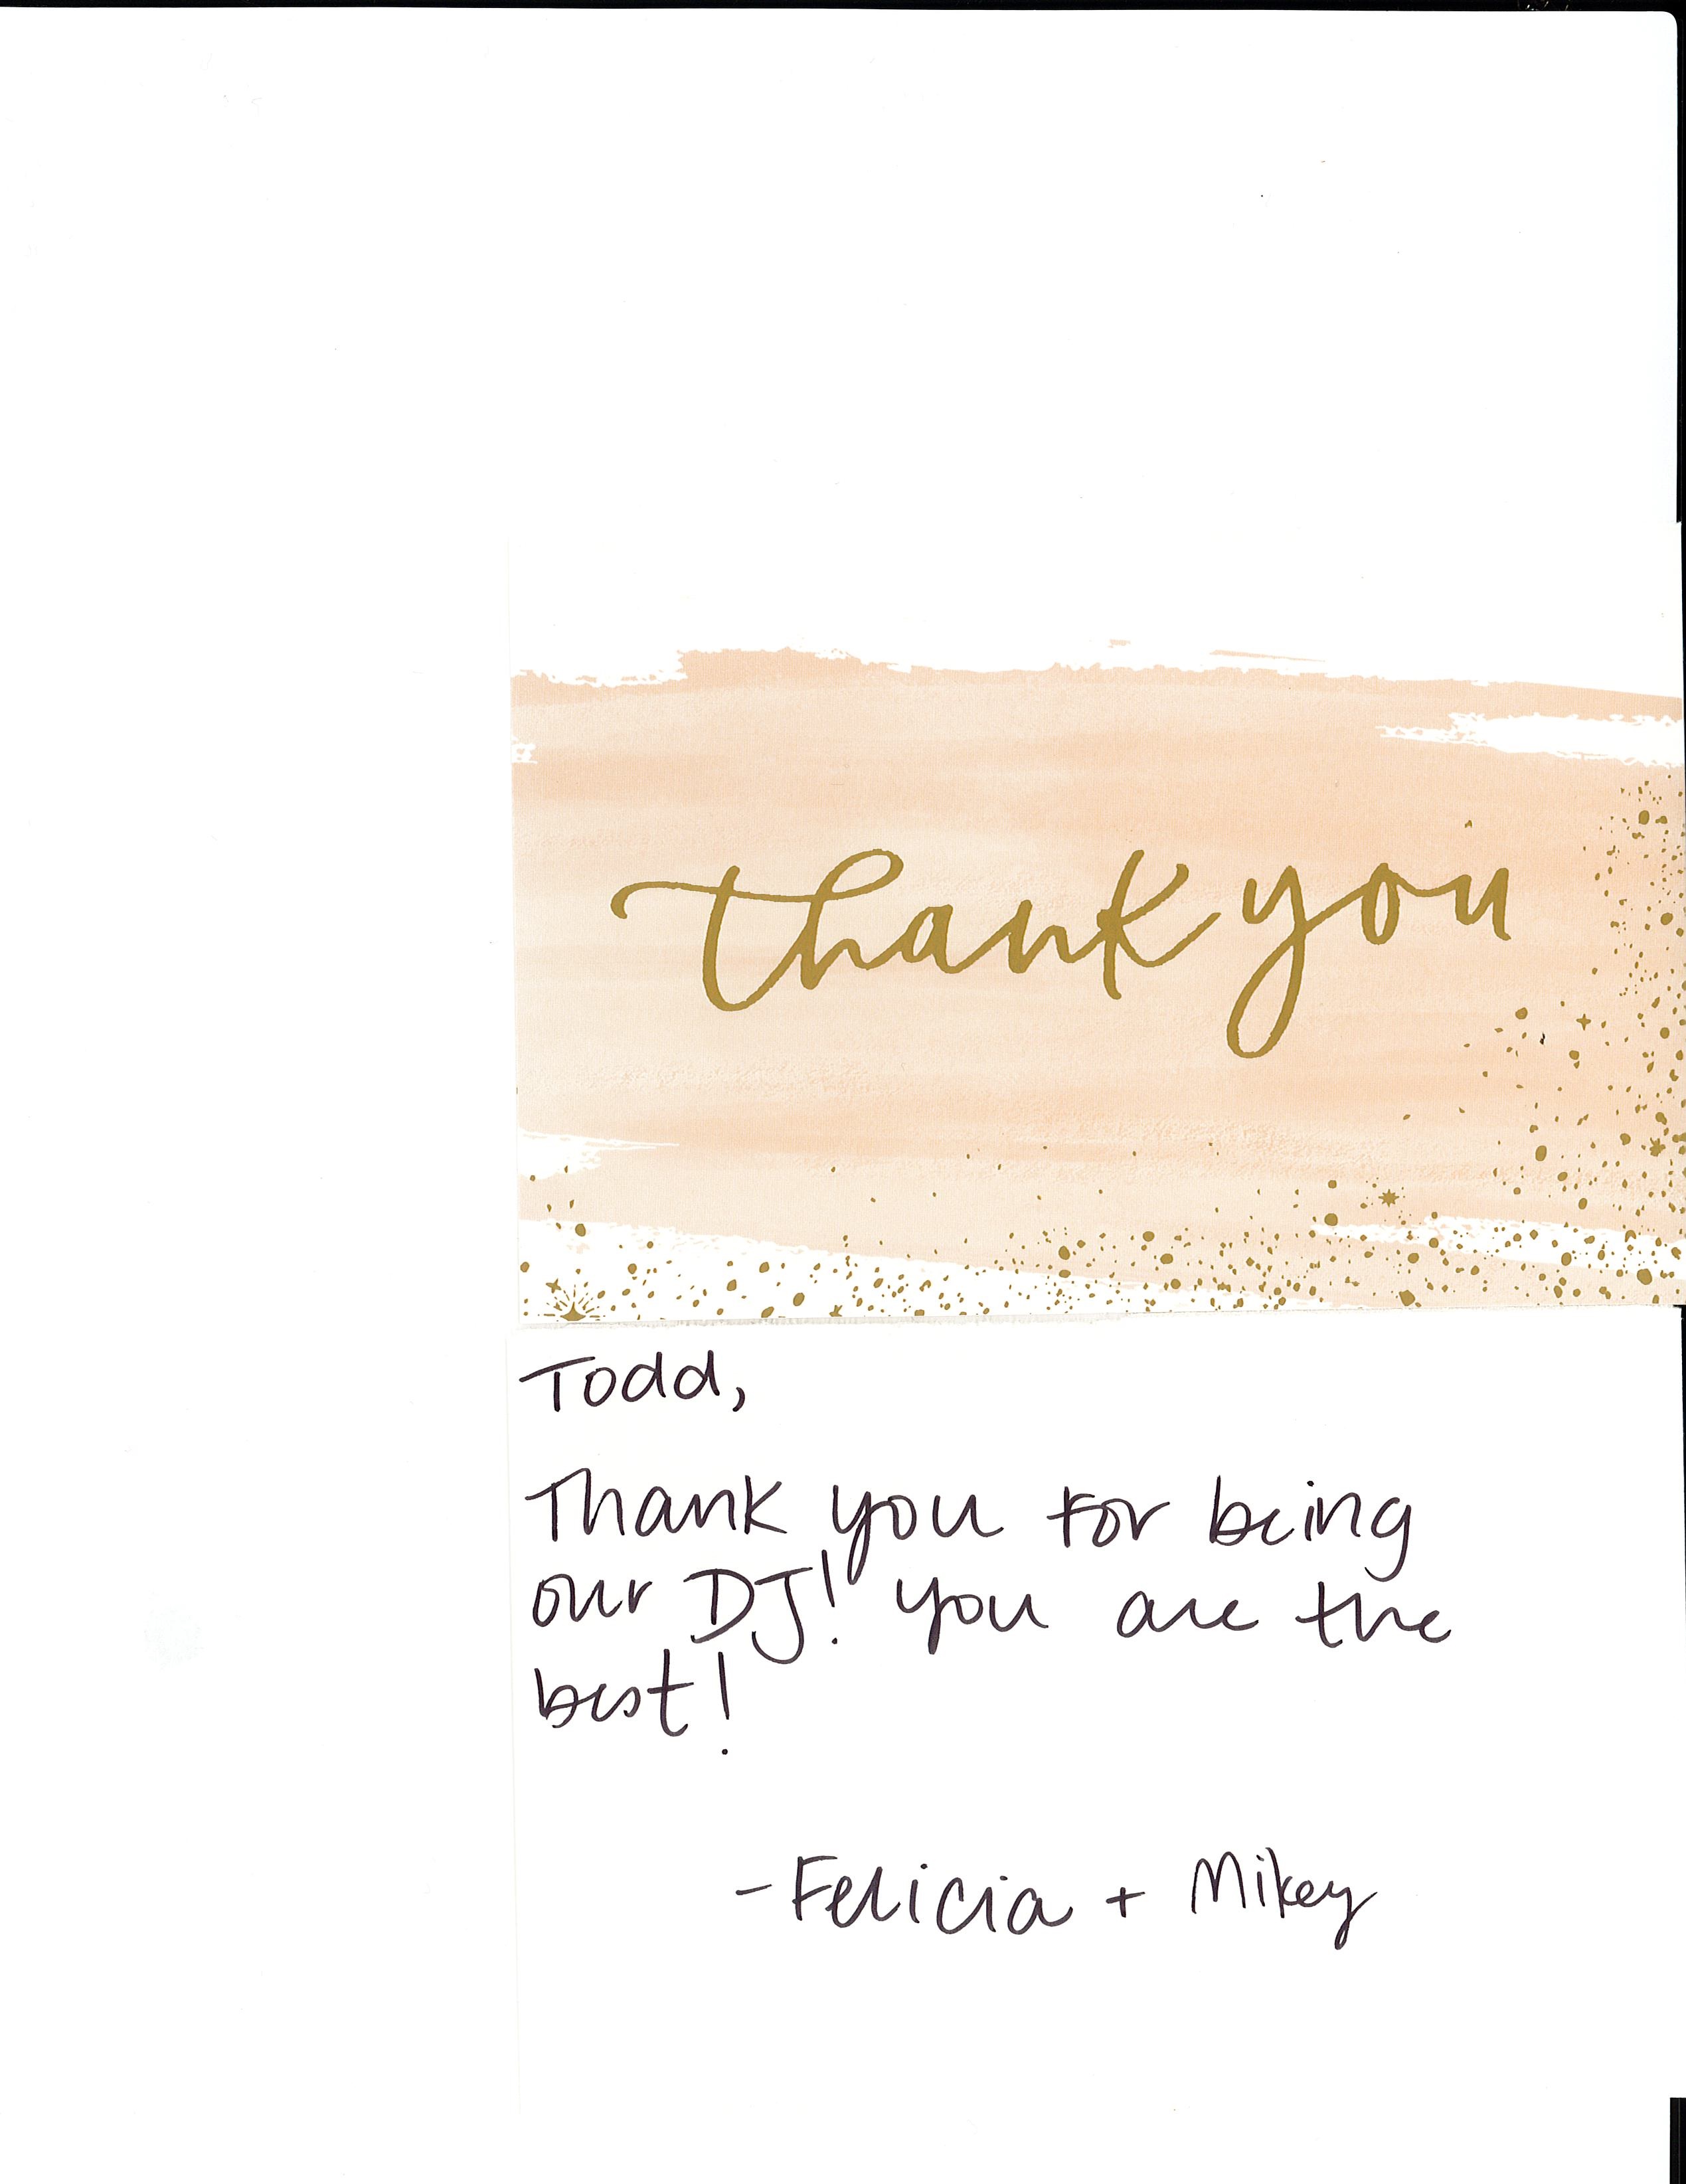 thank you
Todd,
Thank you for being
our DJ! you are the
best!
- Felicia + Mikey